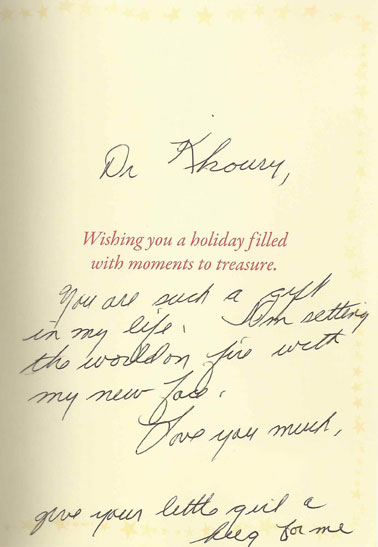 Dr Khoury,
Wishing you a holiday filled
with moments to treasure.
You are such a gift
in my life. I'm setting
the world on fire with
my new face.
Love you much,
give your little girl a
hug for me